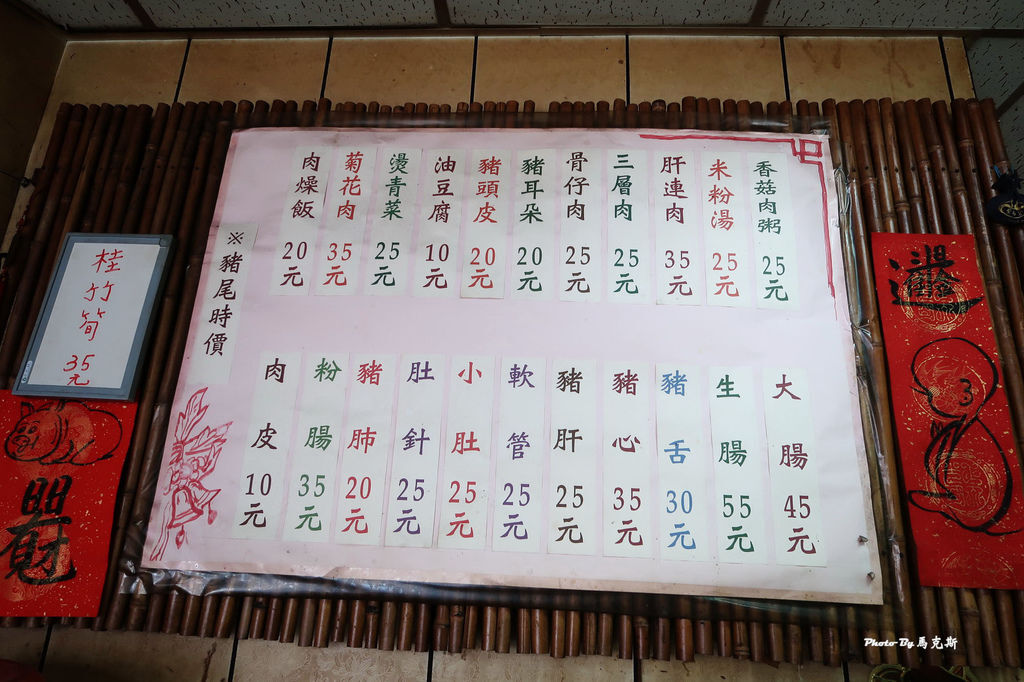 香菇肉粥 25元
米粉湯 25元
肝連肉 35元
三層肉 25元
骨仔肉 25元
豬耳朵 20元
豬頭皮 20元
油豆腐 10元
燙青菜 25元
菊花肉 35元
肉燥飯 20元
※豬尾時價
大腸 45元
生腸 55元
豬舌 30元
豬心 35元
豬肝 25元
軟管 25元
小肚 25元
肚針 25元
豬肺 20元
粉腸 35元
肉皮 10元
桂竹筍 35元
Photo By 馬克斯